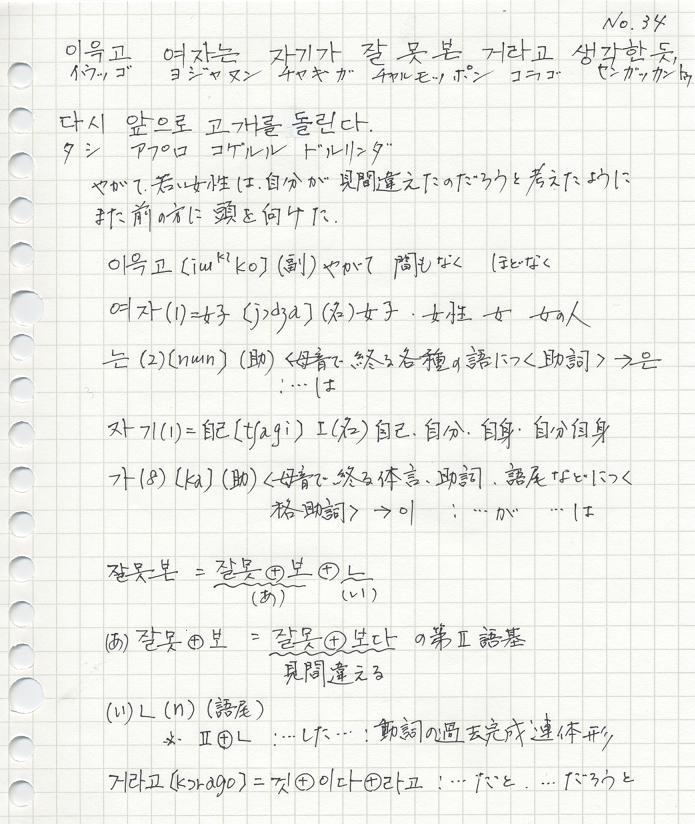 No. 34
이윽고 여자는 자기가 잘 못 본 거라고 생각한 듯,
イウッゴ ヨジャヌン チャギガ チャルモッポン コラゴ センガッカントゥッ
다시 앞으로 고개를 돌린다.
タシ アプロ コゲルル ドルリンダ
やがて、若い女性は、自分が見間違えたのだろうと考えたように
また前の方に頭を向けた.
이윽고 [iɯᵏ²ko] (副) やがて 間もなく ほどなく
여자(1)=女子 [jɔdʒa] (名) 女子・女性 女 女の人
는(2) [nɯn] (助) <母音で終る各種の語につく助詞> → 은
:…は
자기(1)=自己 [tʃagi] I(名) 自己・自分・自身・自分自身
가(8) [ka] (助) <母音で終る体言、助詞、語尾などにつく
格助詞> → 이 :…が …は
잘못본 = 잘못⊕보⊕ㄴ
(あ) (い)
(あ) 잘못⊕보 = 잘못⊕보다 の第Ⅱ語基
見間違える
(い) ㄴ (n) (語尾)
※ Ⅱ⊕ㄴ :…した… : 動詞の過去完成連体形
거라고 [kɔrago] = 것⊕이다⊕라고 :…だと、…だろうと